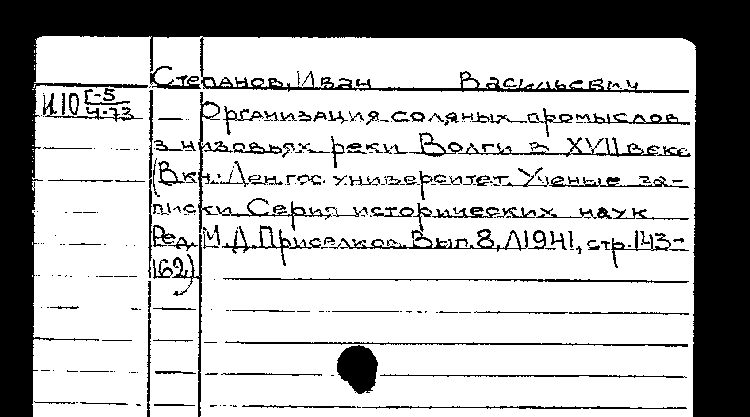 Степанов, Иван Васильевич
И10 Г-5/4-73 Организация соляных промыслов
в низовьях реки Волги в XVII веке
(В кн.: Лен. гос. университет. Ученые за-
писки. Серия исторических наук
Ред. М.Д. Приселков. Вып. 8, Л 1941, стр. 143-
162)